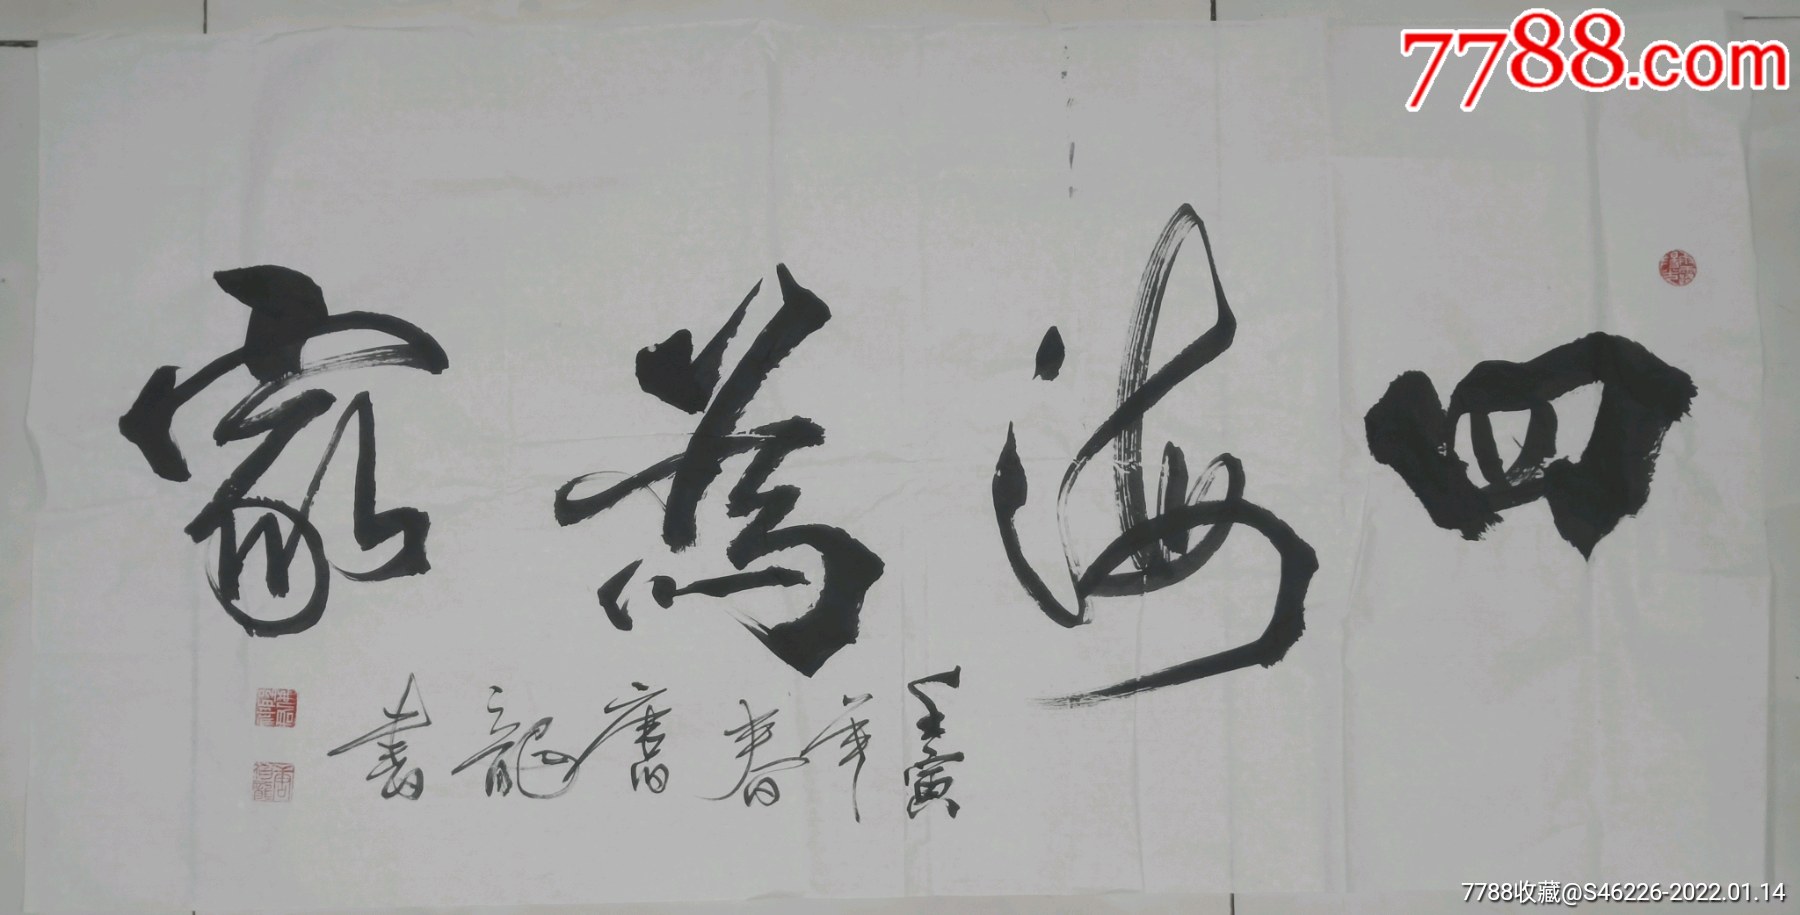 7788.com
四海為家
壬寅年春唐龍書
7788收藏@S46226-2022.01.14